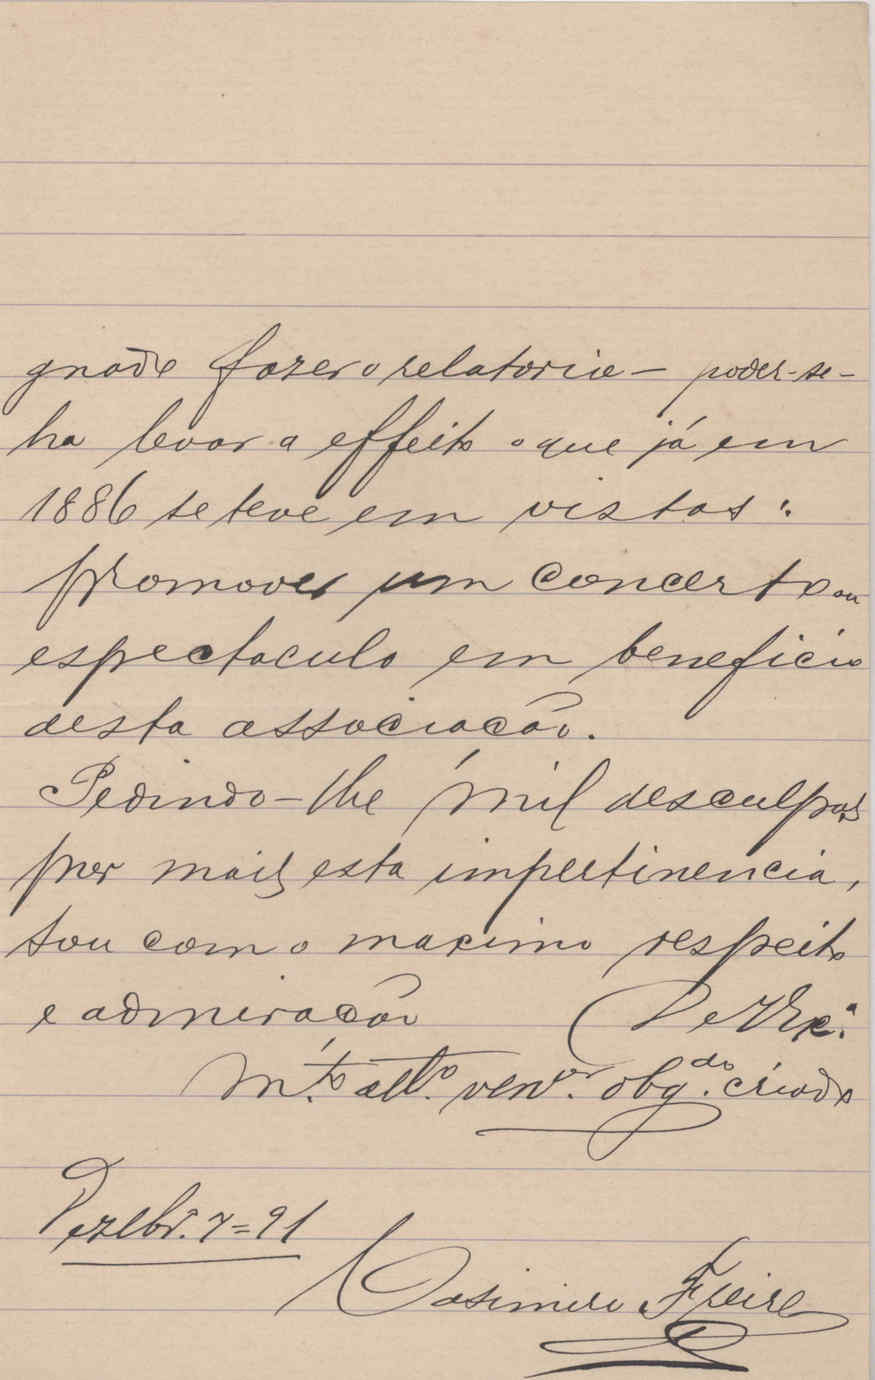 gnado fazer o relatorio — poder-se-
ha levar a effeito o que já em
1886 se teve em vistas:
promover um concerto ou
espectaculo em beneficio
desta associação.
Pedindo-lhe mil desculpas
por mais esta impertinencia,
sou com o maximo respeito
e admiração De V. Ex.ª
M.to att.o ven.or obg.do criado
Dezbr. 7=91
Casimiro Freire